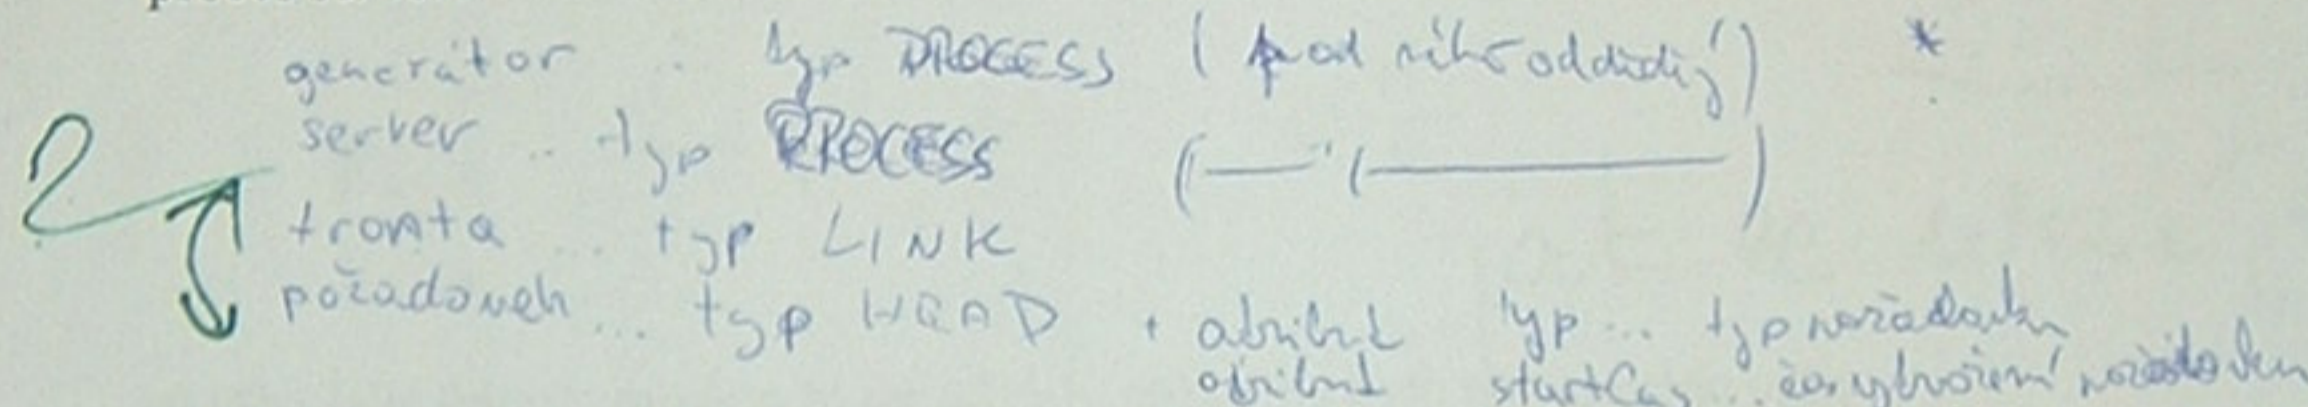 generátor .. typ PROCESS ( od něho odděděný ) *
server .. typ PROCESS ( — " — )
2 fronta ... typ LINK
požadavek ... typ HEAD + atribut typ ... typ požadavku
atribut startČas ... čas vytvoření požadavku